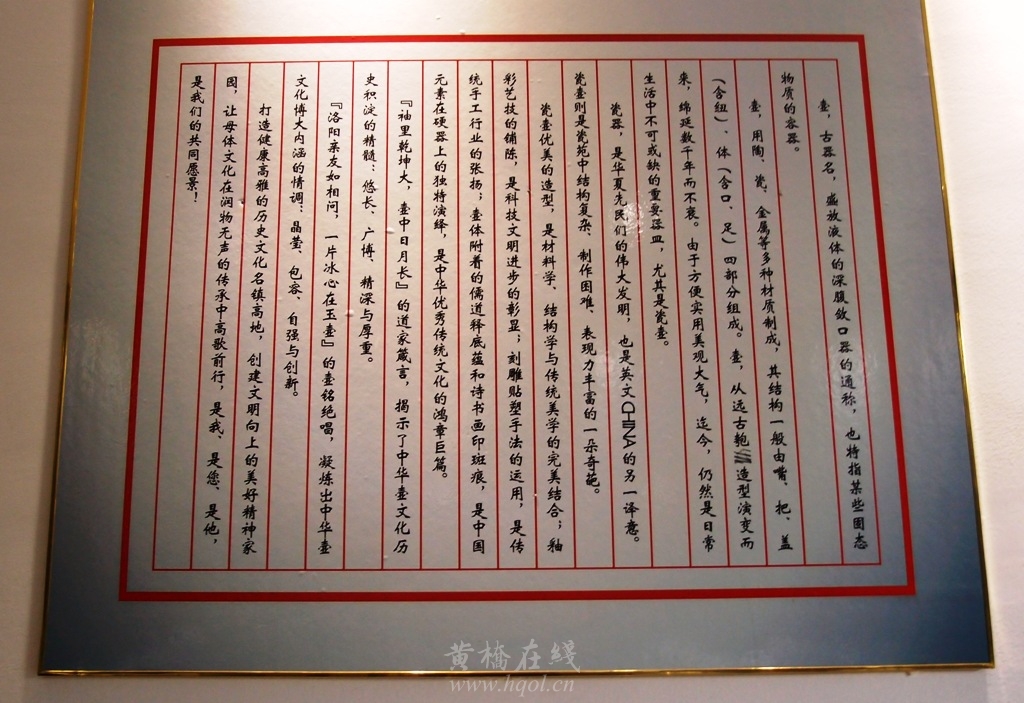 壶，古器名，盛放液体的深腹敛口器的通称，也特指某些固态
物质的容器。
壶，用陶、瓷、金属等多种材质制成，其结构一般由嘴、把、盖
（含纽）、体（含口、足）四部分组成。壶，从远古匏造型演变而
来，绵延数千年而不衰。由于方便实用美观大气，迄今，仍然是日常
生活中不可或缺的重要器皿，尤其是瓷壶。
瓷器，是华夏先民们的伟大发明，也是英文CHINA的另一译意。
瓷壶则是瓷苑中结构复杂、制作困难、表现力丰富的一朵奇葩。
瓷壶优美的造型，是材料学、结构学与传统美学的完美结合；釉
彩艺技的铺陈，是科技文明进步的彰显；刻雕贴塑手法的运用，是传
统手工行业的张扬；壶体附着的儒道释底蕴和诗书画印斑痕，是中国
元素在硬器上的独特演绎，是中华优秀传统文化的鸿章巨篇。
『袖里乾坤大，壶中日月长』的道家箴言，揭示了中华壶文化历
史积淀的精髓：悠长、广博、精深与厚重。
『洛阳亲友如相问，一片冰心在玉壶』的壶铭绝唱，凝炼出中华壶
文化博大内涵的情调：晶莹、包容、自强与创新。
打造健康高雅的历史文化名镇高地，创建文明向上的美好精神家
园，让母体文化在润物无声的传承中高歌前行，是我、是您、是他，
是我们的共同愿景！
黄桥在线
www.hqol.cn